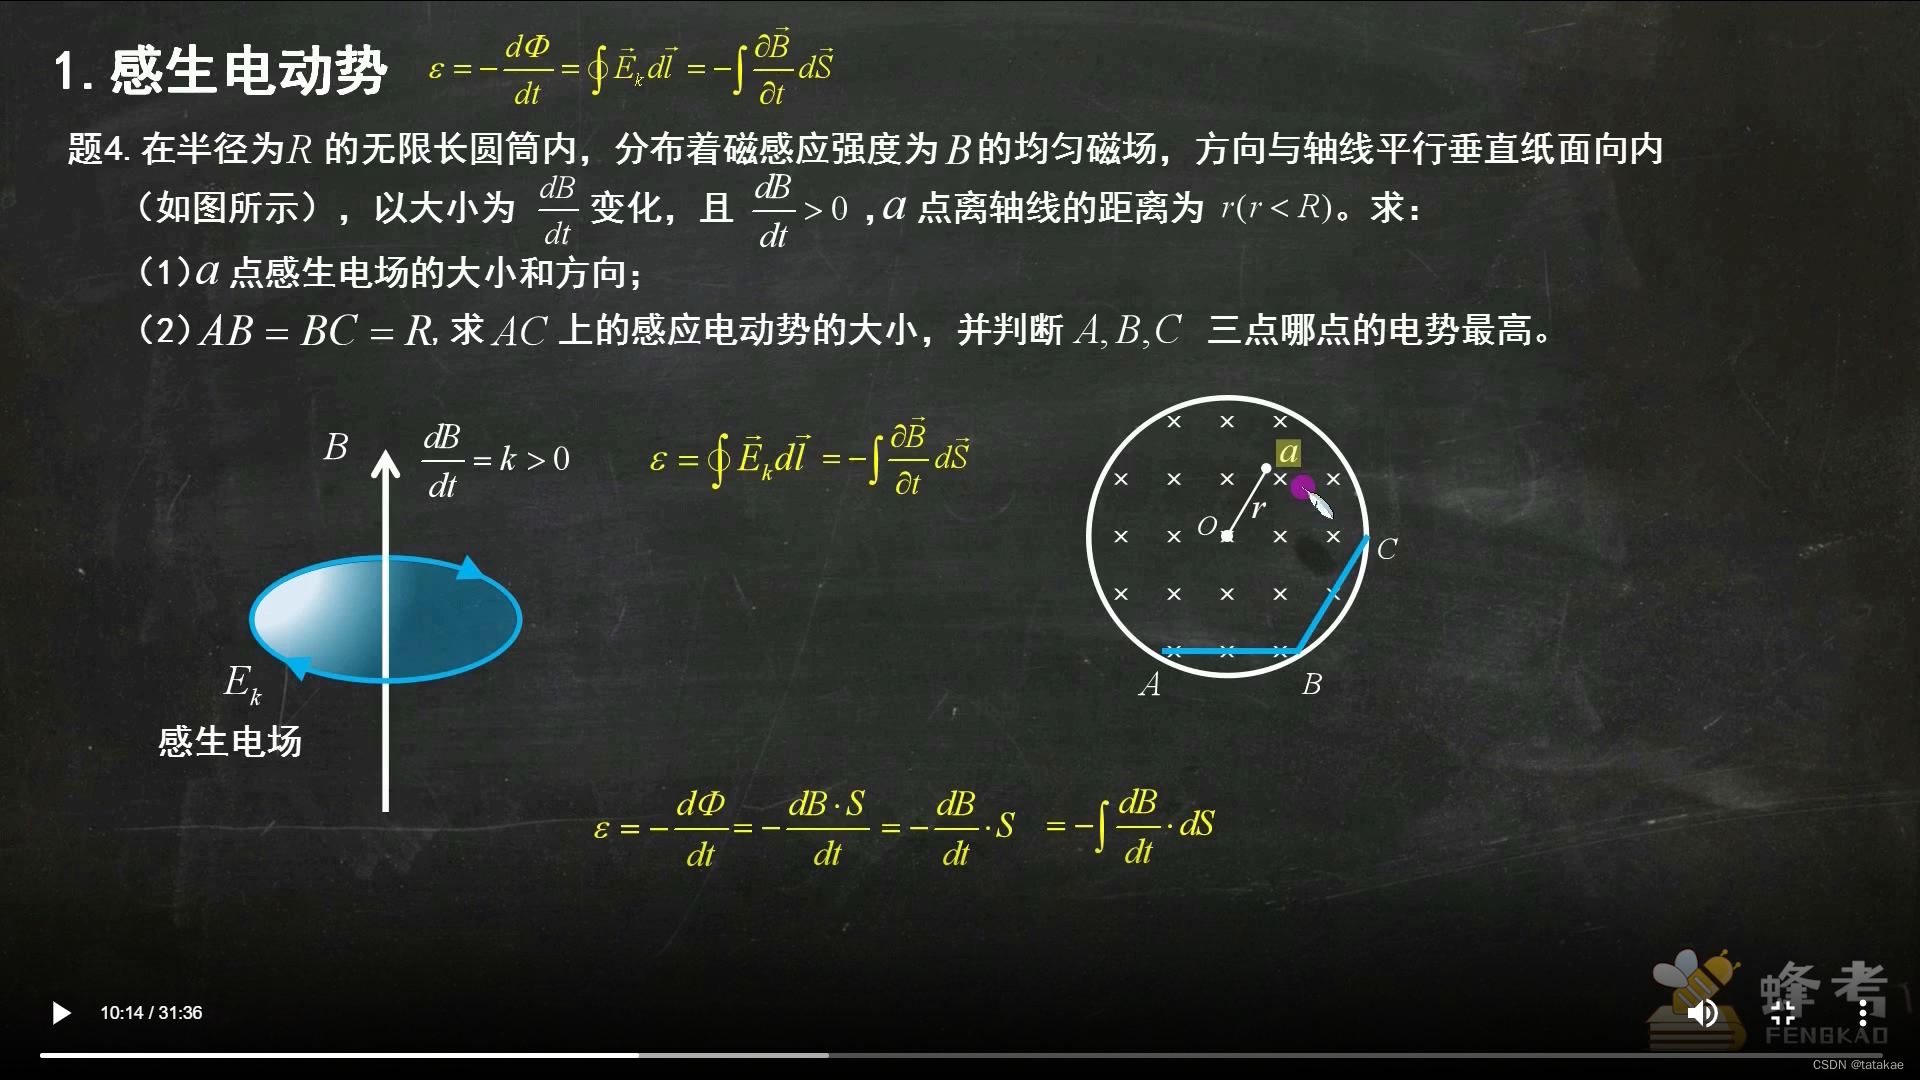 1.感生电动势 ε = −dΦ/dt = ∮E⃗ₖdl⃗ = −∫∂B⃗/∂t dS⃗
题4.在半径为R的无限长圆筒内，分布着磁感应强度为B的均匀磁场，方向与轴线平行垂直纸面向内
（如图所示），以大小为 dB/dt 变化，且 dB/dt > 0 ,a 点离轴线的距离为 r(r < R)。求：
（1）a 点感生电场的大小和方向；
（2）AB = BC = R,求 AC 上的感应电动势的大小，并判断 A,B,C 三点哪点的电势最高。
B dB/dt = k > 0 ε = ∮E⃗ₖdl⃗ = −∫∂B⃗/∂t dS⃗
a
r
O
C
A B
Eₖ
感生电场
ε = −dΦ/dt = −dB·S/dt = −dB/dt·S = −∫dB/dt·dS
蜂考
FENGKAO
10:14 / 31:36
CSDN @tatakae